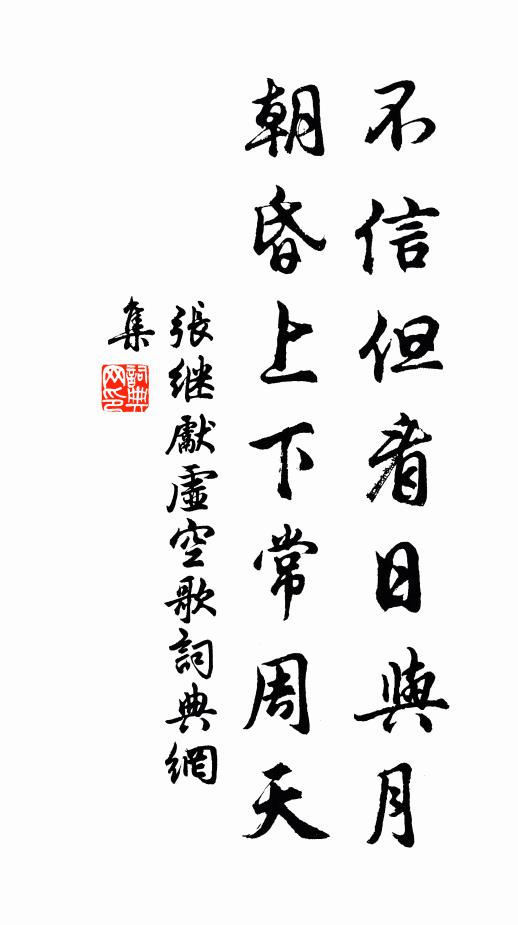 不信但看日與月
朝昏上下常周天
張继獻虛空歌詞典網
集
詞典
网印